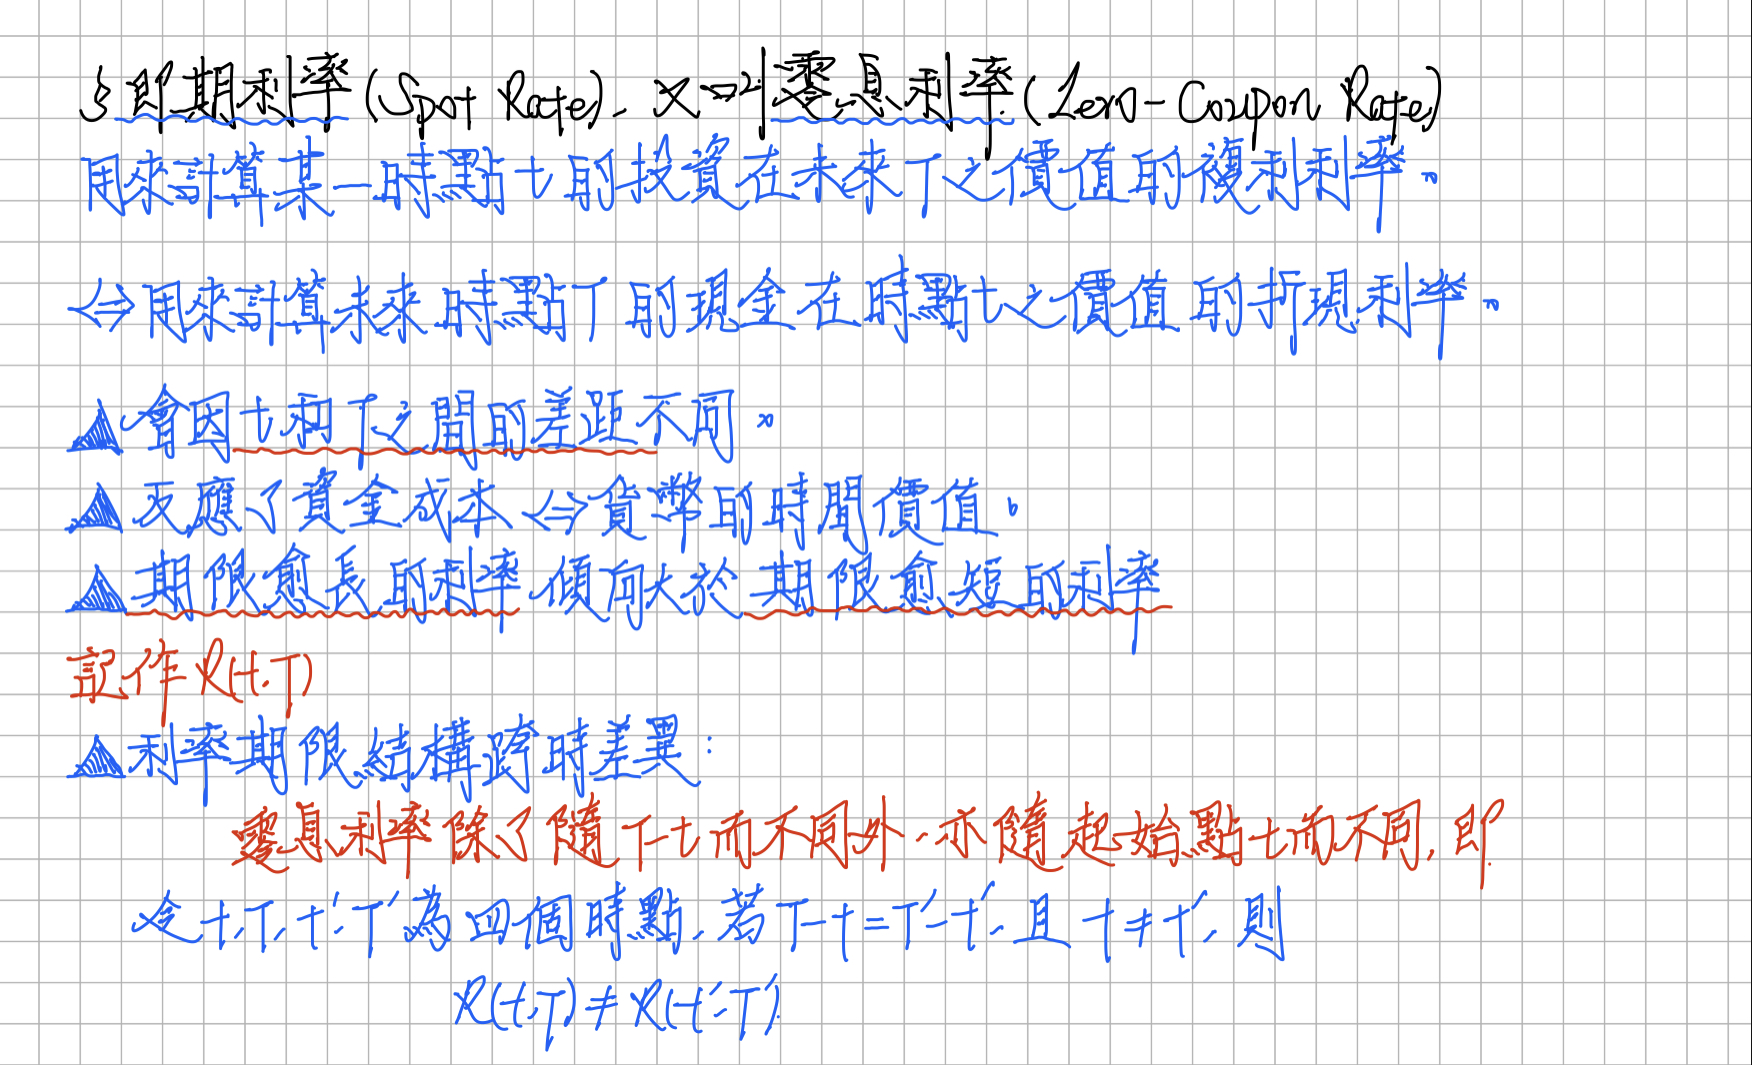 § 即期利率(Spot Rate), 又叫零息利率(Zero-Coupon Rate)
用來計算某一時點t的投資在未來T之價值的複利利率。
⇔用來計算未來時點T的現金在時點t之價值的折現利率。
▲會因t和T之間的差距不同。
▲反應了資金成本⇔貨幣的時間價值。
▲期限愈長的利率傾向大於期限愈短的利率
記作R(t,T)
▲利率期限結構跨時差異:
零息利率除了隨T-t而不同外,亦隨起始點t而不同,即
令t,T,t',T'為四個時點,若T-t=T'-t',且t≠t',則
R(t,T)≠R(t',T')